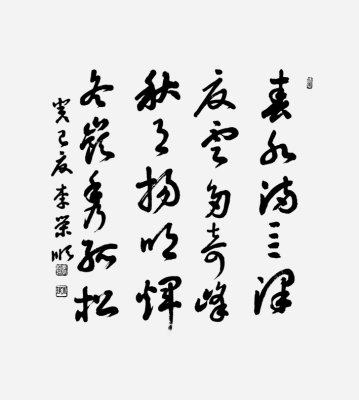 春水满三泽
夏云多奇峰
秋月扬明辉
冬岭秀孤松
癸巳夏李荣顺